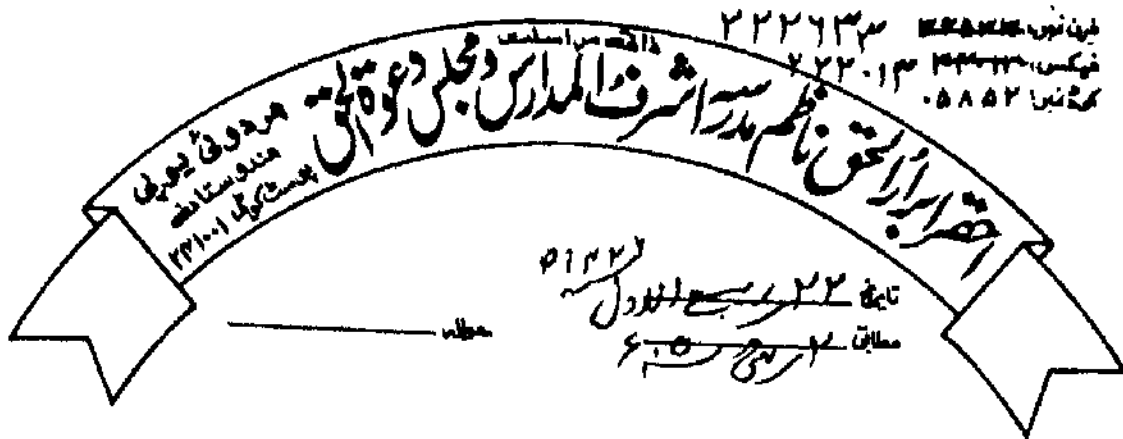 فون نمبر ۲۲۲۶۳۳
فیکس ۲۲۲۰۱۳
کوڈ نمبر ۰۵۸۵۲
ذاتی مراسلت
احقر ابرار الحق ناظم مدرسہ اشرف المدارس و مجلس دعوۃ الحق
ہردوئی یوپی
ہندوستان
پوسٹ کوڈ ۲۴۱۰۰۱
تاریخ ۲۲ ربیع الاول
مطابق
حوالہ